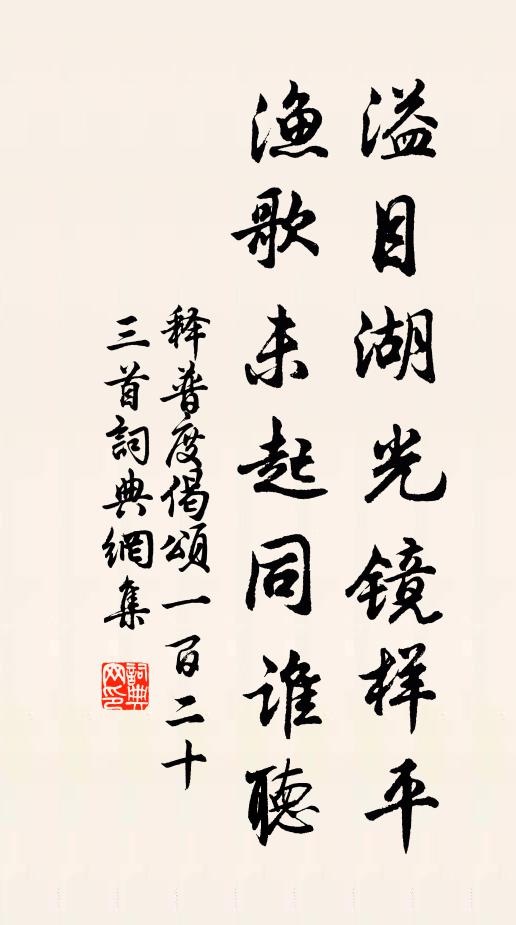 溢目湖光镜样平
渔歌未起同谁聴
释普度偈頌一百二十
三首詞典網集
詞典網印